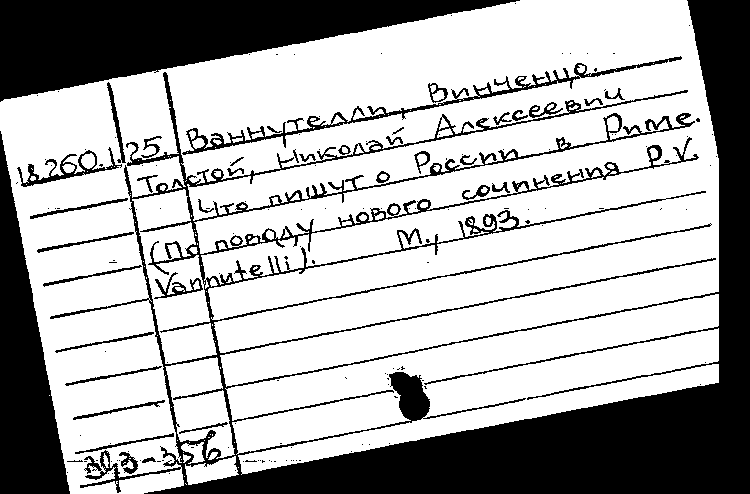 18.260.1.25. Ваннутелли, Винченцо.
Толстой, Николай Алексеевич
Что пишут о России в Риме.
(По поводу нового сочинения P.V.
Vannutelli). М., 1893.
393-356